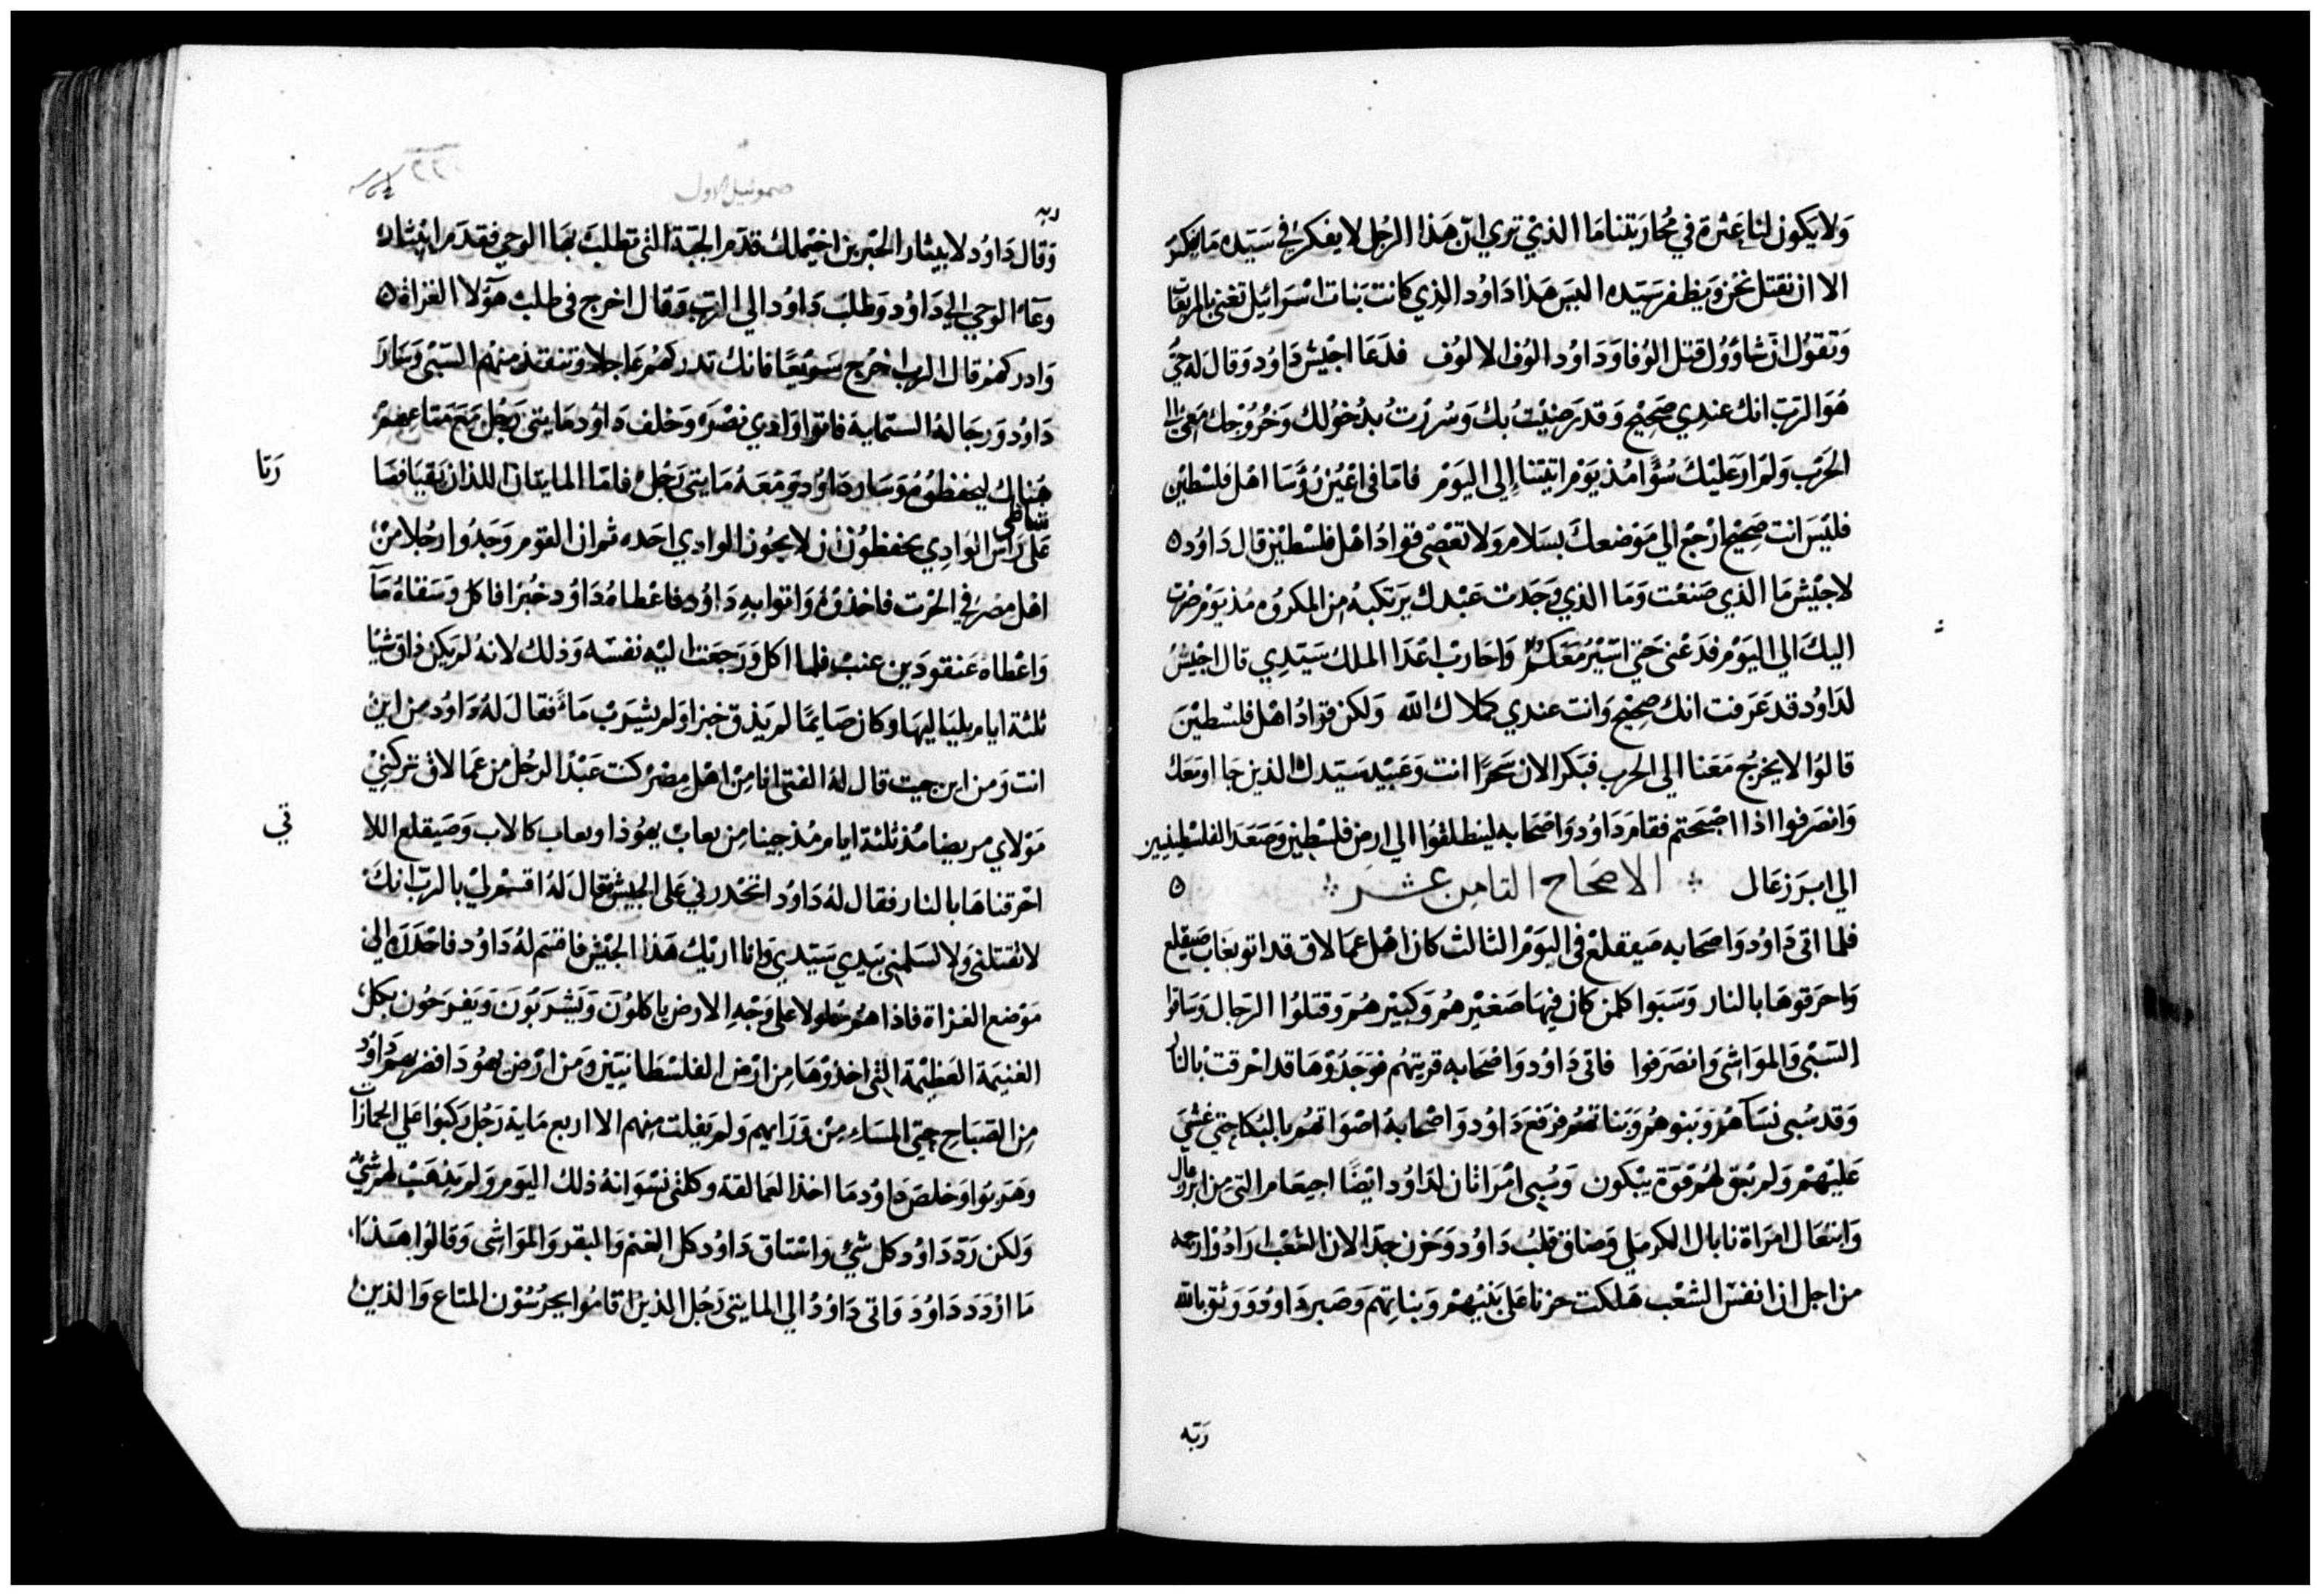 وَلا يَكون لنا عَثرة في مُحاربتنا مَا الذيْ تري انّ هَذا الرجُل لا يفكر في سَيّده مَا يفكر
الا ان نقتل نحن وَيظفر سَيّده اليسَ هَذا دَاوُد الذِي كانت بَنات اسْرائيل تغني بالمربعات
وَتقوُل انّ شاوُوُل قتل الوُفا وَدَاوُد الوُف الالوُف فدَعَا اجيْش دَاوُد وَقال له حيٌّ
هُوَ الرَبّ انك عندِي صَحِيْح وَقد رَضِيْتُ بك وَسُررْتُ بدُخوُلك وَخرُوْجك مَعي الي
الحَرْب وَلم ارَ عَليْكَ سُوًّا مُذ يَوْم اتيْتنا إلى اليَوْم فامّا في اعْيُن رُؤسَا اهْل فلسْطيْن
فليْسَ انت صَحِيْح ارْجعْ الي مَوْضعكَ بسَلام وَلا تعْصِيْ قوادُ اهْل فلسْطيْن قال دَاوُد ٥
لاجيْش مَا الذي صَنعْت وَمَا الذي وَجَدْت عَبْدك يَرتكبهُ من المكروُه مُذ يَوْم صرْت
اليكَ الي اليَوْم فدَعْني حَتى اسَيْرُ مَعَكمُ وَاحَاربْ اعْدَا الملك سَيّدِي قال اجيْشُ
لدَاوُد قد عَرَفت انك صَحِيْح وَانت عندي كملاك الله وَلكن قوادُ اهْل فلسْطيْن
قالوُا لا يخرُج مَعَنا الي الحرب فبَكر الان سَحرًا انت وَعَبيْد سَيّدك الذين جَااوا مَعَك
وَانصَرفوا اذا اصْبَحتم فقامَ دَاوُد وَاصْحَابه لينطلقوُا الي ارض فلسْطين وَصَعَدَ الفلسْطينيين
الي ابرَزعَال الاصحَاح الثامِن عشر ٥
فلما اتى دَاوُد وَاصحَابه صَيقلغ في اليَوْم الثالث كان اهْل عمَالاق قد اتو بعَاب صَيقلغ
وَاحرَقوهَا بالنار وَسَبَوا كلمن كان فيْهَا صَغيْرهُم وَكبيْرهُم وَقتلوُا الرّجال وَسَاقوا
السَّبْي وَالموَاشي وَانصَرَفوا فاتى دَاوُد وَاصْحَابه قريتهُم فوَجَدُوْهَا قد احْرقت بْالنار
وَقد سُبي نسَآهُم وَبنوهُم وَبَناتهُم فرَفعَ دَاوُد وَاصْحابهُ اصْوَاتهُم بالبُكا حَتي غشيَ
عَليْهمْ وَلم يَبْق لهُم قوَة يَبْكون وَسُبي امْرَاتان لدَاوُد ايْضًا اجيعَام التي من ابرزعال
وَابيغال امْرَاة نابال الكرملي وَضاق قلبُ دَاوُد وَحَزن جدّا لان الشعْب ارَادُوْا رَجمه
من اجل ان انفسَ الشعْب هَلكت حزنا علي بَنيْهمْ وَبناتِهم وَصَبر دَاوُد وَوَثق بالله
رَبّه
٢٢٠
صموئيل الاول
ربه
وَقال دَاوُد لابيثار الحَبْر بن اخيْملك قدّم الجبّة التي تطلبَ بهَا الوحي فقدم ابيْثار
وعَاء الوحي الي دَاوُد وَطلبَ دَاوُد الي الرَب وَقال اخرج في طلبْ هَوُلا الغزاة ٥
وَادركهُمْ قال الربّ اخرُج سَريْعًا فانك تدركهُم عَاجلا وتنقذ منهُم السَّبْي وَسَارَ
دَاوُد وَرجَالهُ الستمايَة فاتوا وَادِي نصْرَه وَخلف دَاوُد مَايتي رَجُل مَعَ مَتاعهمْ
هُناك ليحفظوُه وَسَار دَاوُد وَمَعَهُ مَايتي رَجُل فامّا المايتان اللذان بَقيَا فقا
رَتا
شاطي
عَلى رَاس الوَادِي يحفظوُن ان لا يجوُن الوادي احَده ثم ان القوم وَجَدُوا رجُلا منْ
اهْل مِصْر في الحَرْث فاخذوُهُ وَاتوا بهِ دَاوُد فاعْطاهُ دَاوُد خُبْزا فاكل وَسَقاهُ مَآ
وَاعْطاه عَنقودَين عنبْ فلما اكل وَرَجعَت اليْه نفسَه وَذلك لانهُ لم يَكن ذاق شيْئا
ثلثة ايام بليَاليهَا وكان صَايمًا لم يَذق خبزا وَلم يشرَبْ مَاءً فقالَ لهُ دَاوُد مِن ايْنْ
انت وَمن اين جيت قال لهُ الفتى انا مِنْ اهْل مِصْر كنت عَبْد الرجُل من عمَالاق تركنِيْ
مَوْلاي مريضا مُنذ ثلثة ايام مُذ جينا مِن يعابْ يهوُذا وبعاب كالاب وَصَيقلع اللا
تي
احْرقناهَا بالنار فقال لهُ دَاوُد اتحْدرني عَلى الجيش قال لهُ اقسم ليْ بالربّ انكْ
لا تقتلني وَلا تسَلمني بيَدِي سَيّدي وَانا اريْك هَذا الجيْش فاقسَم لهُ دَاوُد فاحْدَرَه الي
مَوْضع الغزاة فاذا هُمْ حُلولا على وَجْهِ الارض ياكلوُن وَيَشرَبُونَ وَيَفرَحُون بكل
الغنيَمة العَظيْمة التي اخذوْهَا مِن ارْض الفلسْطانيّين وَمن ارْض يهوُدَا فضربهم دَاوُد
مِن الصَبَاح حتي المسَاء مِنْ وَرَايهم وَلم يَفلت مِنهم الا اربع مَايةِ رَجُل رَكبُوا عَلي الحمَازات
وَهَرَبُوا وَخلصَ دَاوُد مَا اخذ العَمالقة وكلتى نسْوَانهُ ذلك اليَوم وَلم يَذهَبْ لهم شيٌ
وَلكن رَدّ دَاوُد كل شئ وَاستاق دَاوُد كل الغنم وَالبَقر وَالموَاشي وَقالوُا هَذا
مَا ارْدَد دَاوُد وَاتى دَاوُدُ الي المايتي رَجُل الذيْن اقامُوا يحرُسُوْن المتاع وَالذينْ